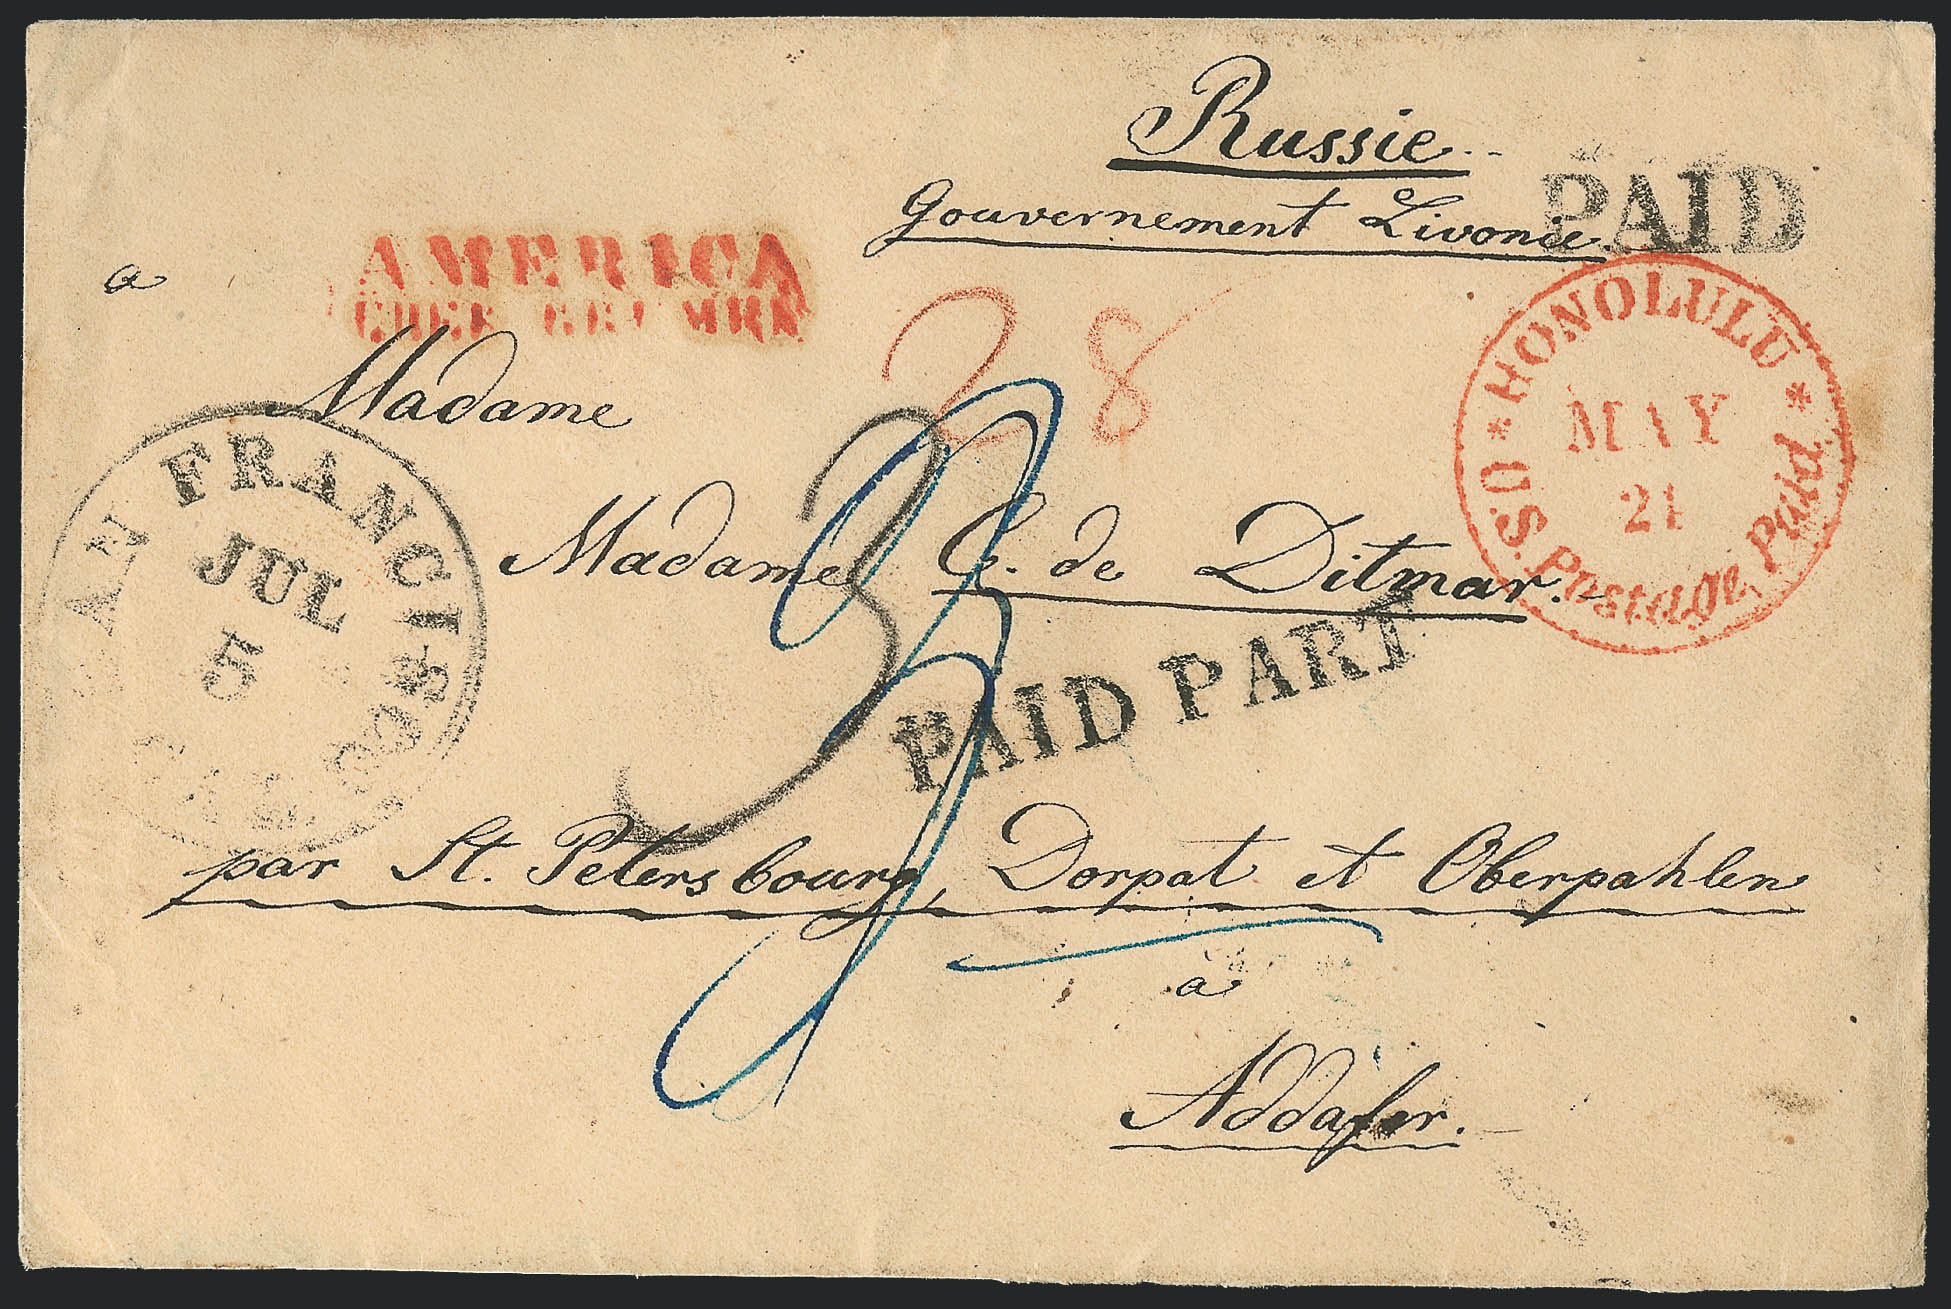 Russie
Gouvernement Livonie.
PAID
AMERICA
a
28
HONOLULU
MAY
21
U.S. Postage Paid.
Madame
SAN FRANCISCO
JUL
5
CAL.
3
Madame C. de Ditmar.
PAID PART
par St. Petersbourg, Dorpat et Oberpahlen
à
Addafer.